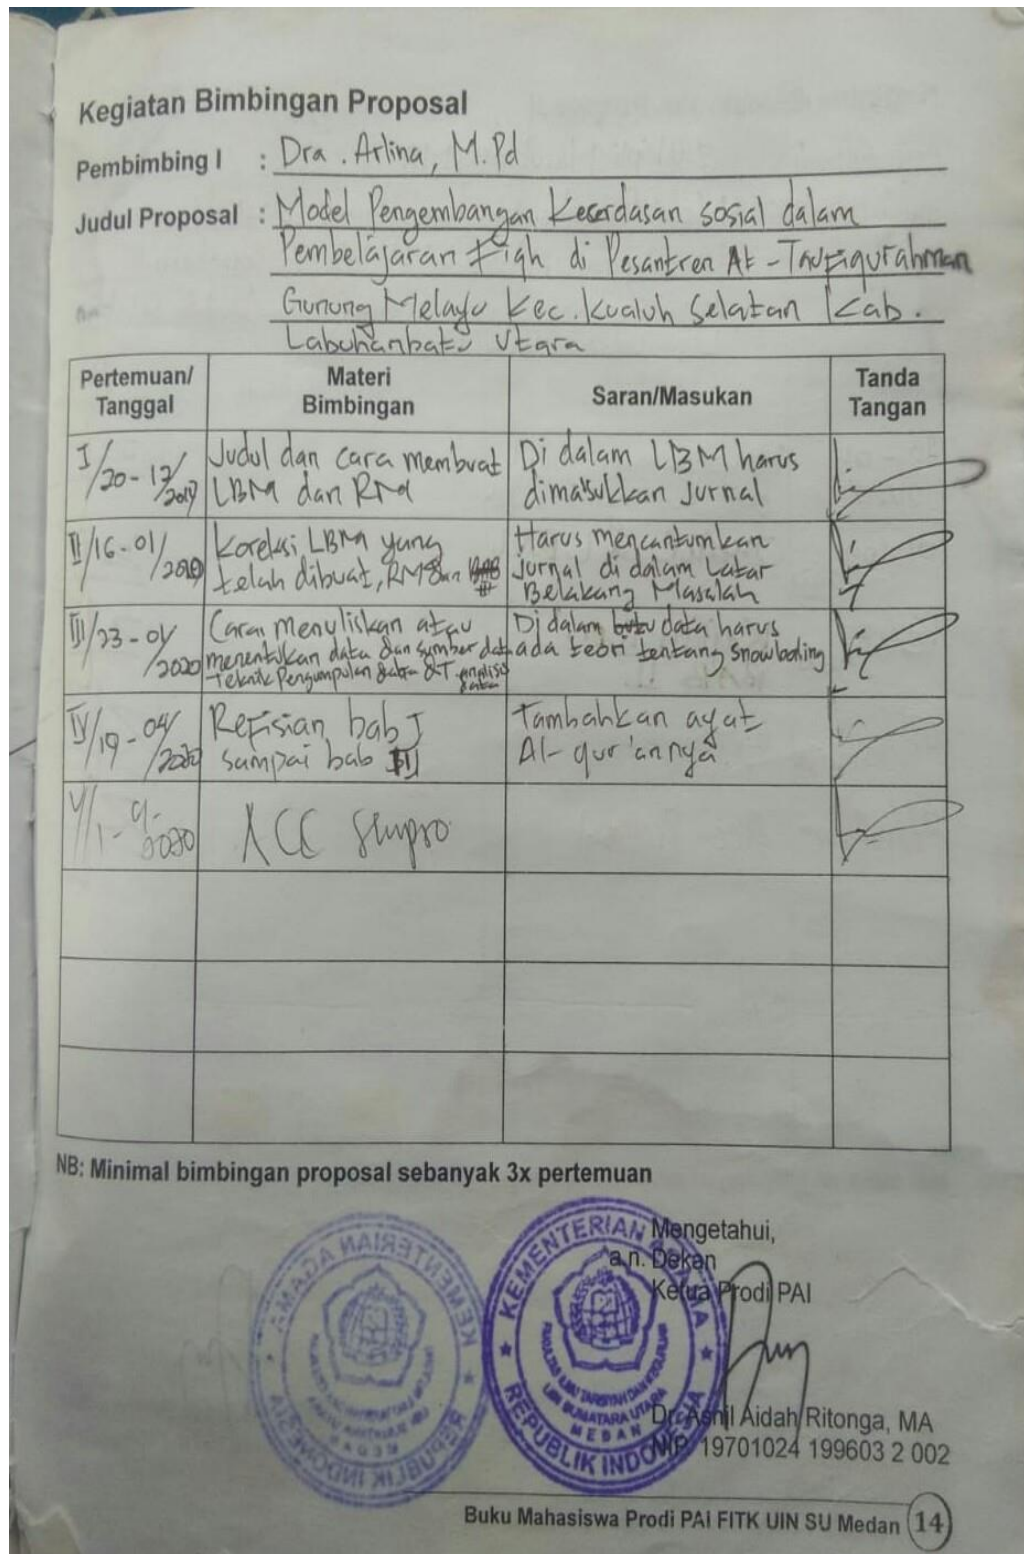 Kegiatan Bimbingan Proposal
Pembimbing I : Dra. Arlina, M.Pd
Judul Proposal : Model Pengembangan Kecerdasan sosial dalam
Pembelajaran Fiqh di Pesantren At-Taufiqurahman
Gunung Melayu Kec. Kualuh Selatan Kab.
Labuhanbatu Utara
Pertemuan/ Tanggal
Materi Bimbingan
Saran/Masukan
Tanda Tangan
I/20-12/2019
Judul dan cara membuat
LBM dan RM
Di dalam LBM harus
dimasukkan Jurnal
II/16-01/2020
Koreksi LBM yang
telah dibuat, RM dan
Harus mencantumkan
jurnal di dalam Latar
Belakang Masalah
III/23-01/2020
Cara menuliskan atau
menentukan data dan sumber data
Teknik Pengumpulan data & T analisis
data
Di dalam data harus
ada teori tentang snowboling
IV/19-04/2020
Refisian bab I
sampai bab III
Tambahkan ayat
Al-qur'annya
V/1-9-2020
ACC Sempro
NB: Minimal bimbingan proposal sebanyak 3x pertemuan
Mengetahui,
a.n. Dekan
Ketua Prodi PAI
KEMENTERIAN AGAMA
FAKULTAS ILMU TARBIYAH DAN KEGURUAN
UIN SUMATARA UTARA
MEDAN
REPUBLIK INDONESIA
Dr. Asnil Aidah Ritonga, MA
NIP. 19701024 199603 2 002
Buku Mahasiswa Prodi PAI FITK UIN SU Medan 14